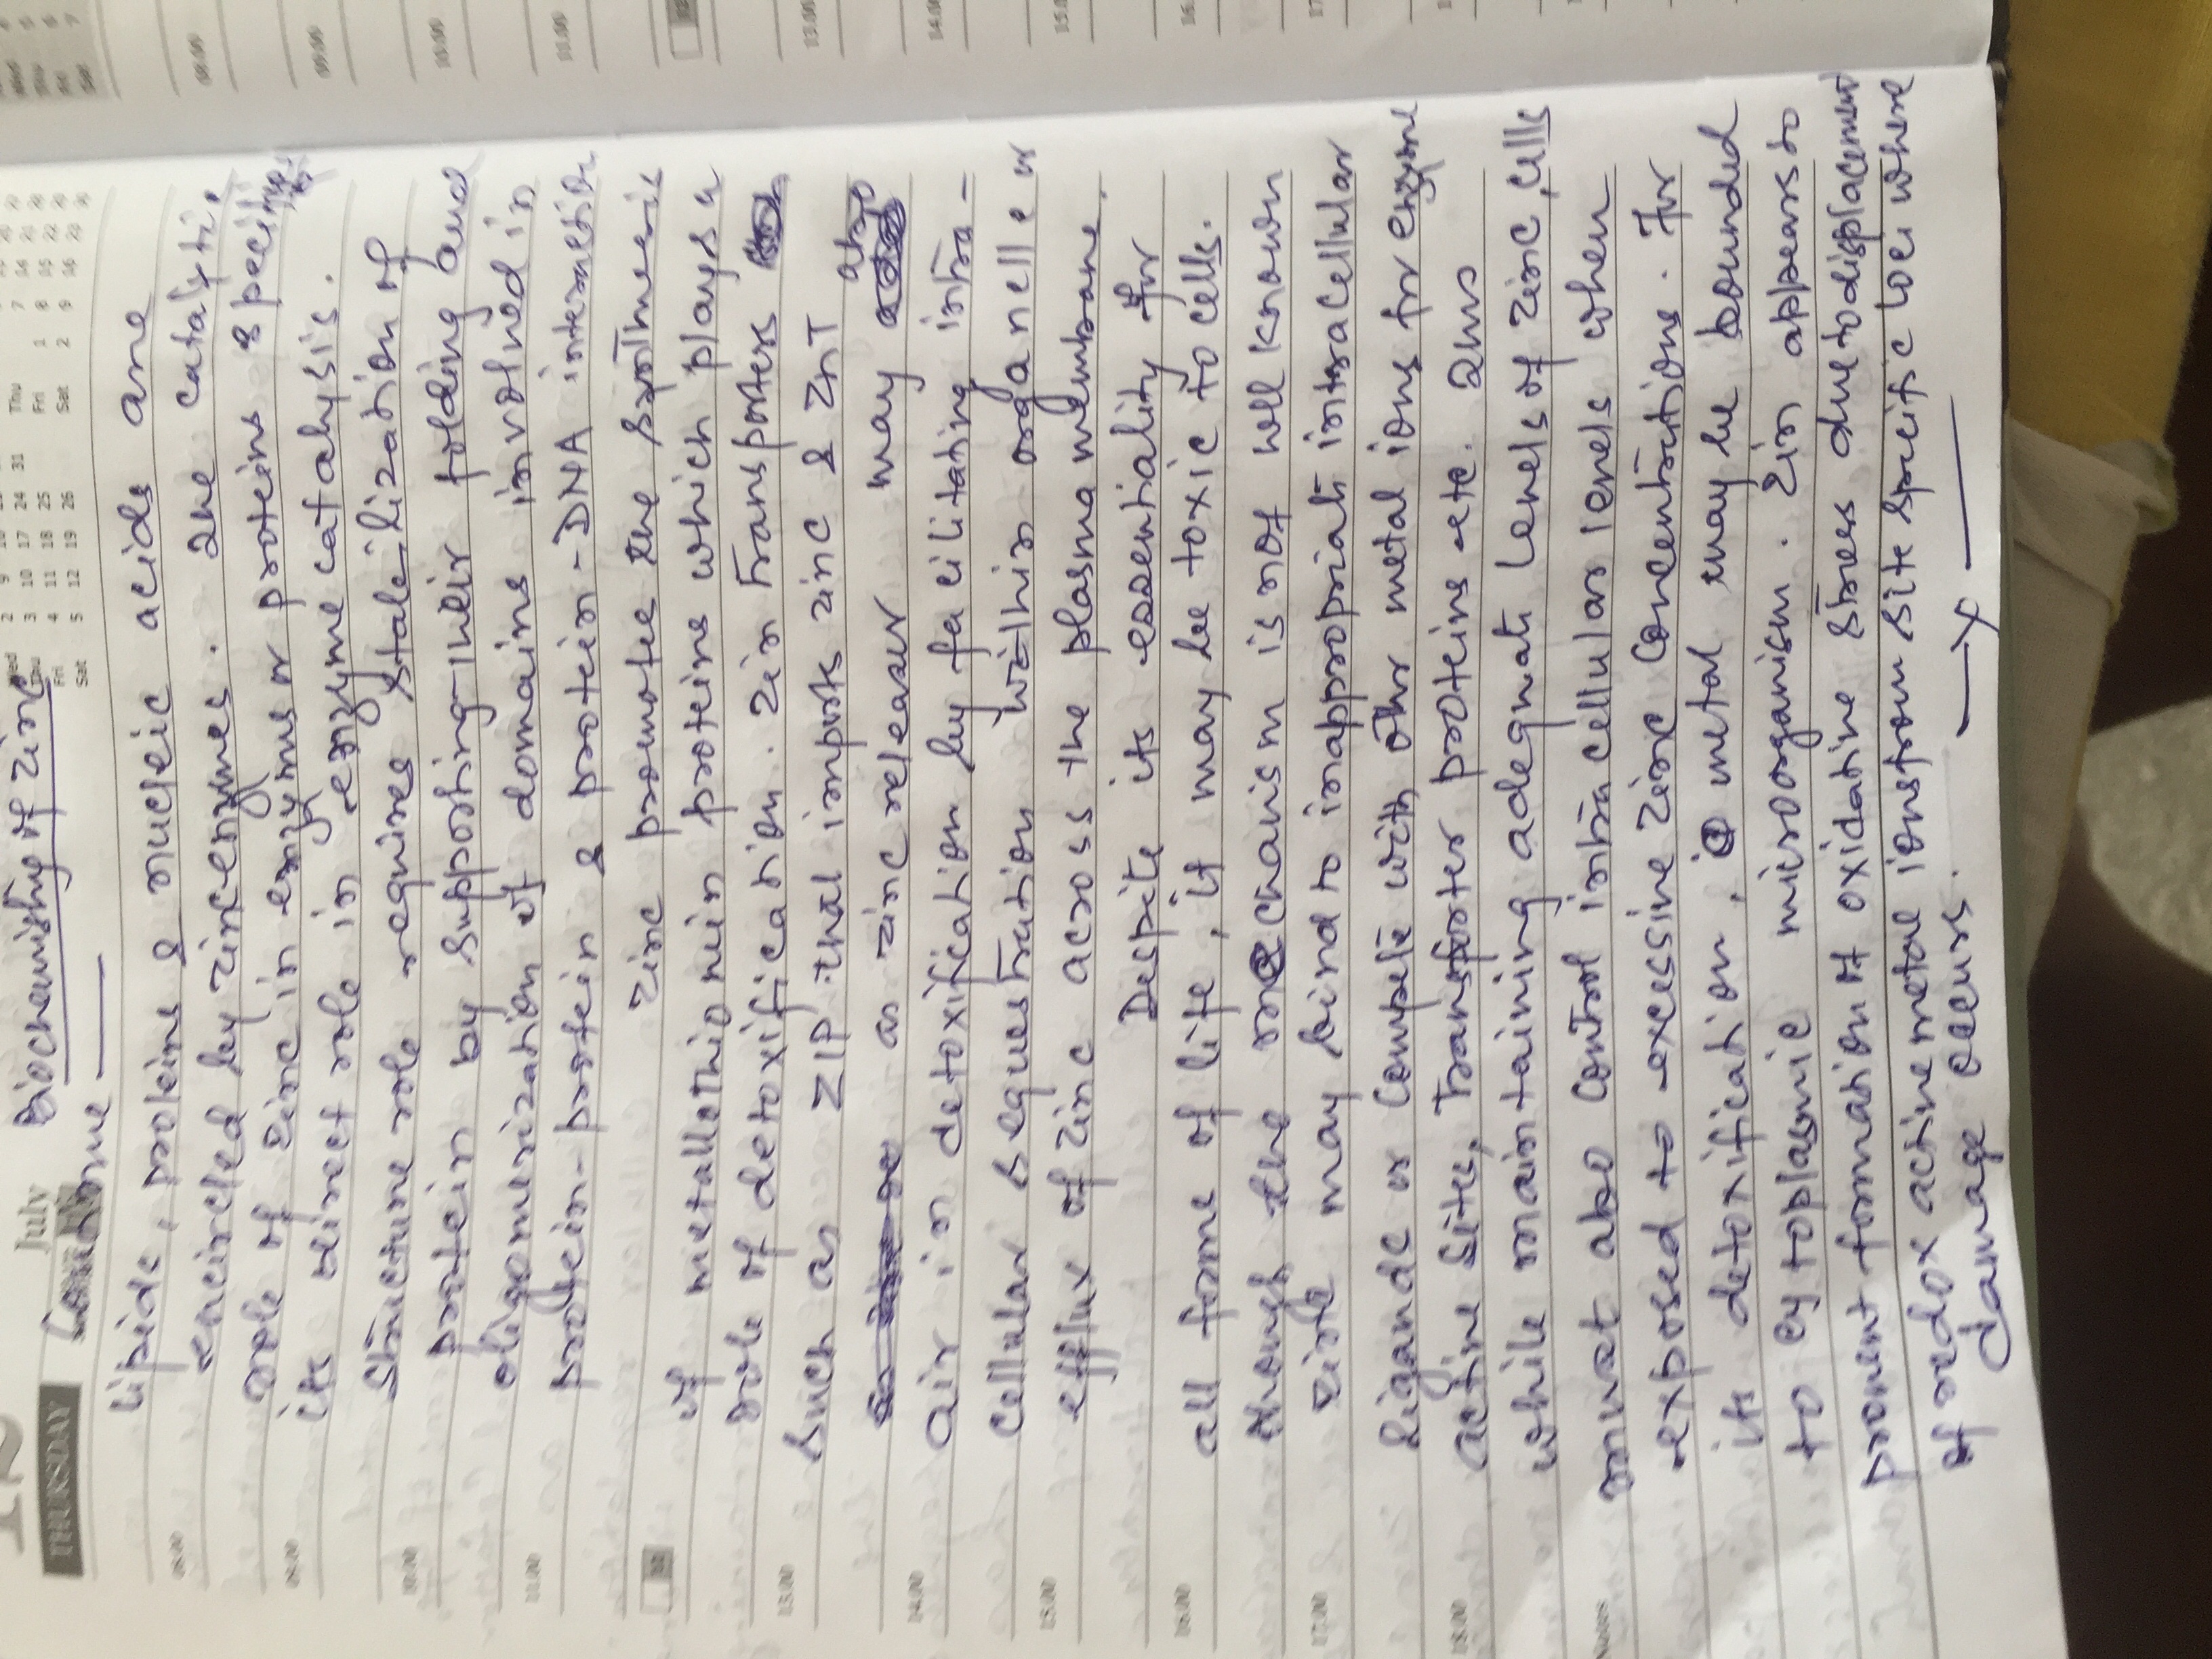 July Biochemistry of Zinc
THURSDAY
Wed 2 9 16
Thu 3 10 17 24 31
Fri 4 11 18 25
Sat 5 12 19 26
Thu 7 14
Fri 1 8 15 22
Sat 2 9 16 23 30
lipids, proteins & nucleic acids are
encircled by zinc enzymes. The catalytic
role of zinc in enzymes or proteins
its direct role in enzyme catalysis.
Structure role requires stabilization of
protein by supporting their folding and
oligomerization of domains involved in
protein-protein & protein-DNA interaction
Zinc promotes the synthesis
of metallothionein proteins which plays a
role of detoxification. Zin Transporters
such as ZIP that imports zinc & ZnT
as zinc releaser may also
air in detoxification by facilitating intra-
cellular sequestration within organelle or
efflux of zinc across the plasma membrane.
Despite its essentiality for
all forms of life, it may be toxic to cells.
though the mechanism is not well known
may bind to inappropriate intracellular
ligands or compete with other metal ions for enzyme
active sites, Transporter proteins etc. Thus
while maintaining adequate levels of zinc, cells
must also control intracellular levels when
exposed to excessive zinc concentrations. For
its detoxification, metal may be bounded
to cytoplasmic microorganism. Zin appears to
proment formation of oxidative stress due to displacement
of redox active metal ions from site specific loci where
damage occurs.
—x—
08.00
09.00
10.00
11.00
13.00
14.00
15.00
16.00
17.00
18.00
Notes
08.00
09.00
10.00
11.00
13.00
14.00
15.0
16.
17